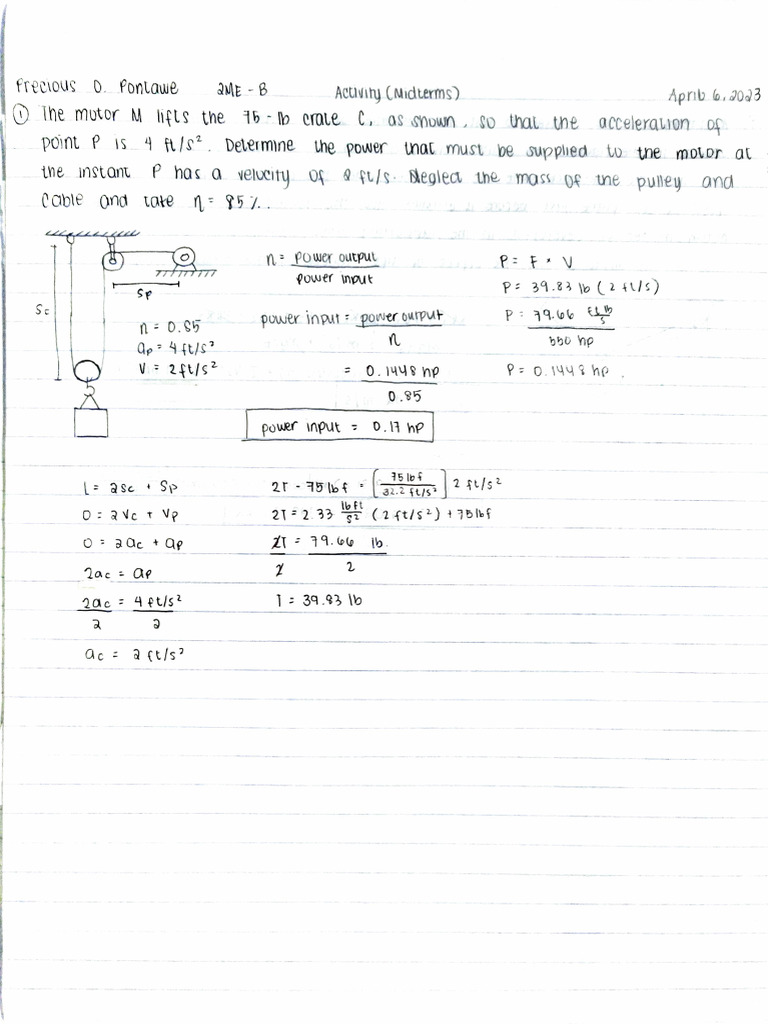 Precious D. Pontawe 2ME - B Activity (Midterms) April 6, 2023
① The motor M lifts the 75 - lb crate C, as shown, so that the acceleration of
point P is 4 ft/s². Determine the power that must be supplied to the motor at
the instant P has a velocity of 2 ft/s. Neglect the mass of the pulley and
Cable and take n = 85 %.
Sc
Sp
n = 0.85
ap = 4 ft/s²
V = 2 ft/s²
n = power output
power input
power input = power output
n
= 0.1448 hp
0.85
power input = 0.17 hp
P = F × V
P = 39.83 lb ( 2 ft/s)
P = 79.66 ft lb
s
550 hp
P = 0.1448 hp .
l = 2sc + Sp
0 = 2Vc + Vp
0 = 2ac + ap
2ac = ap
2ac = 4 ft/s²
2 2
ac = 2 ft/s²
2T - 75 lbf = [75 lbf / 32.2 ft/s²] 2 ft/s²
2T = 2.33 lb ft / s² (2 ft/s²) + 75 lbf
2T = 79.66 lb
2 2
T = 39.83 lb